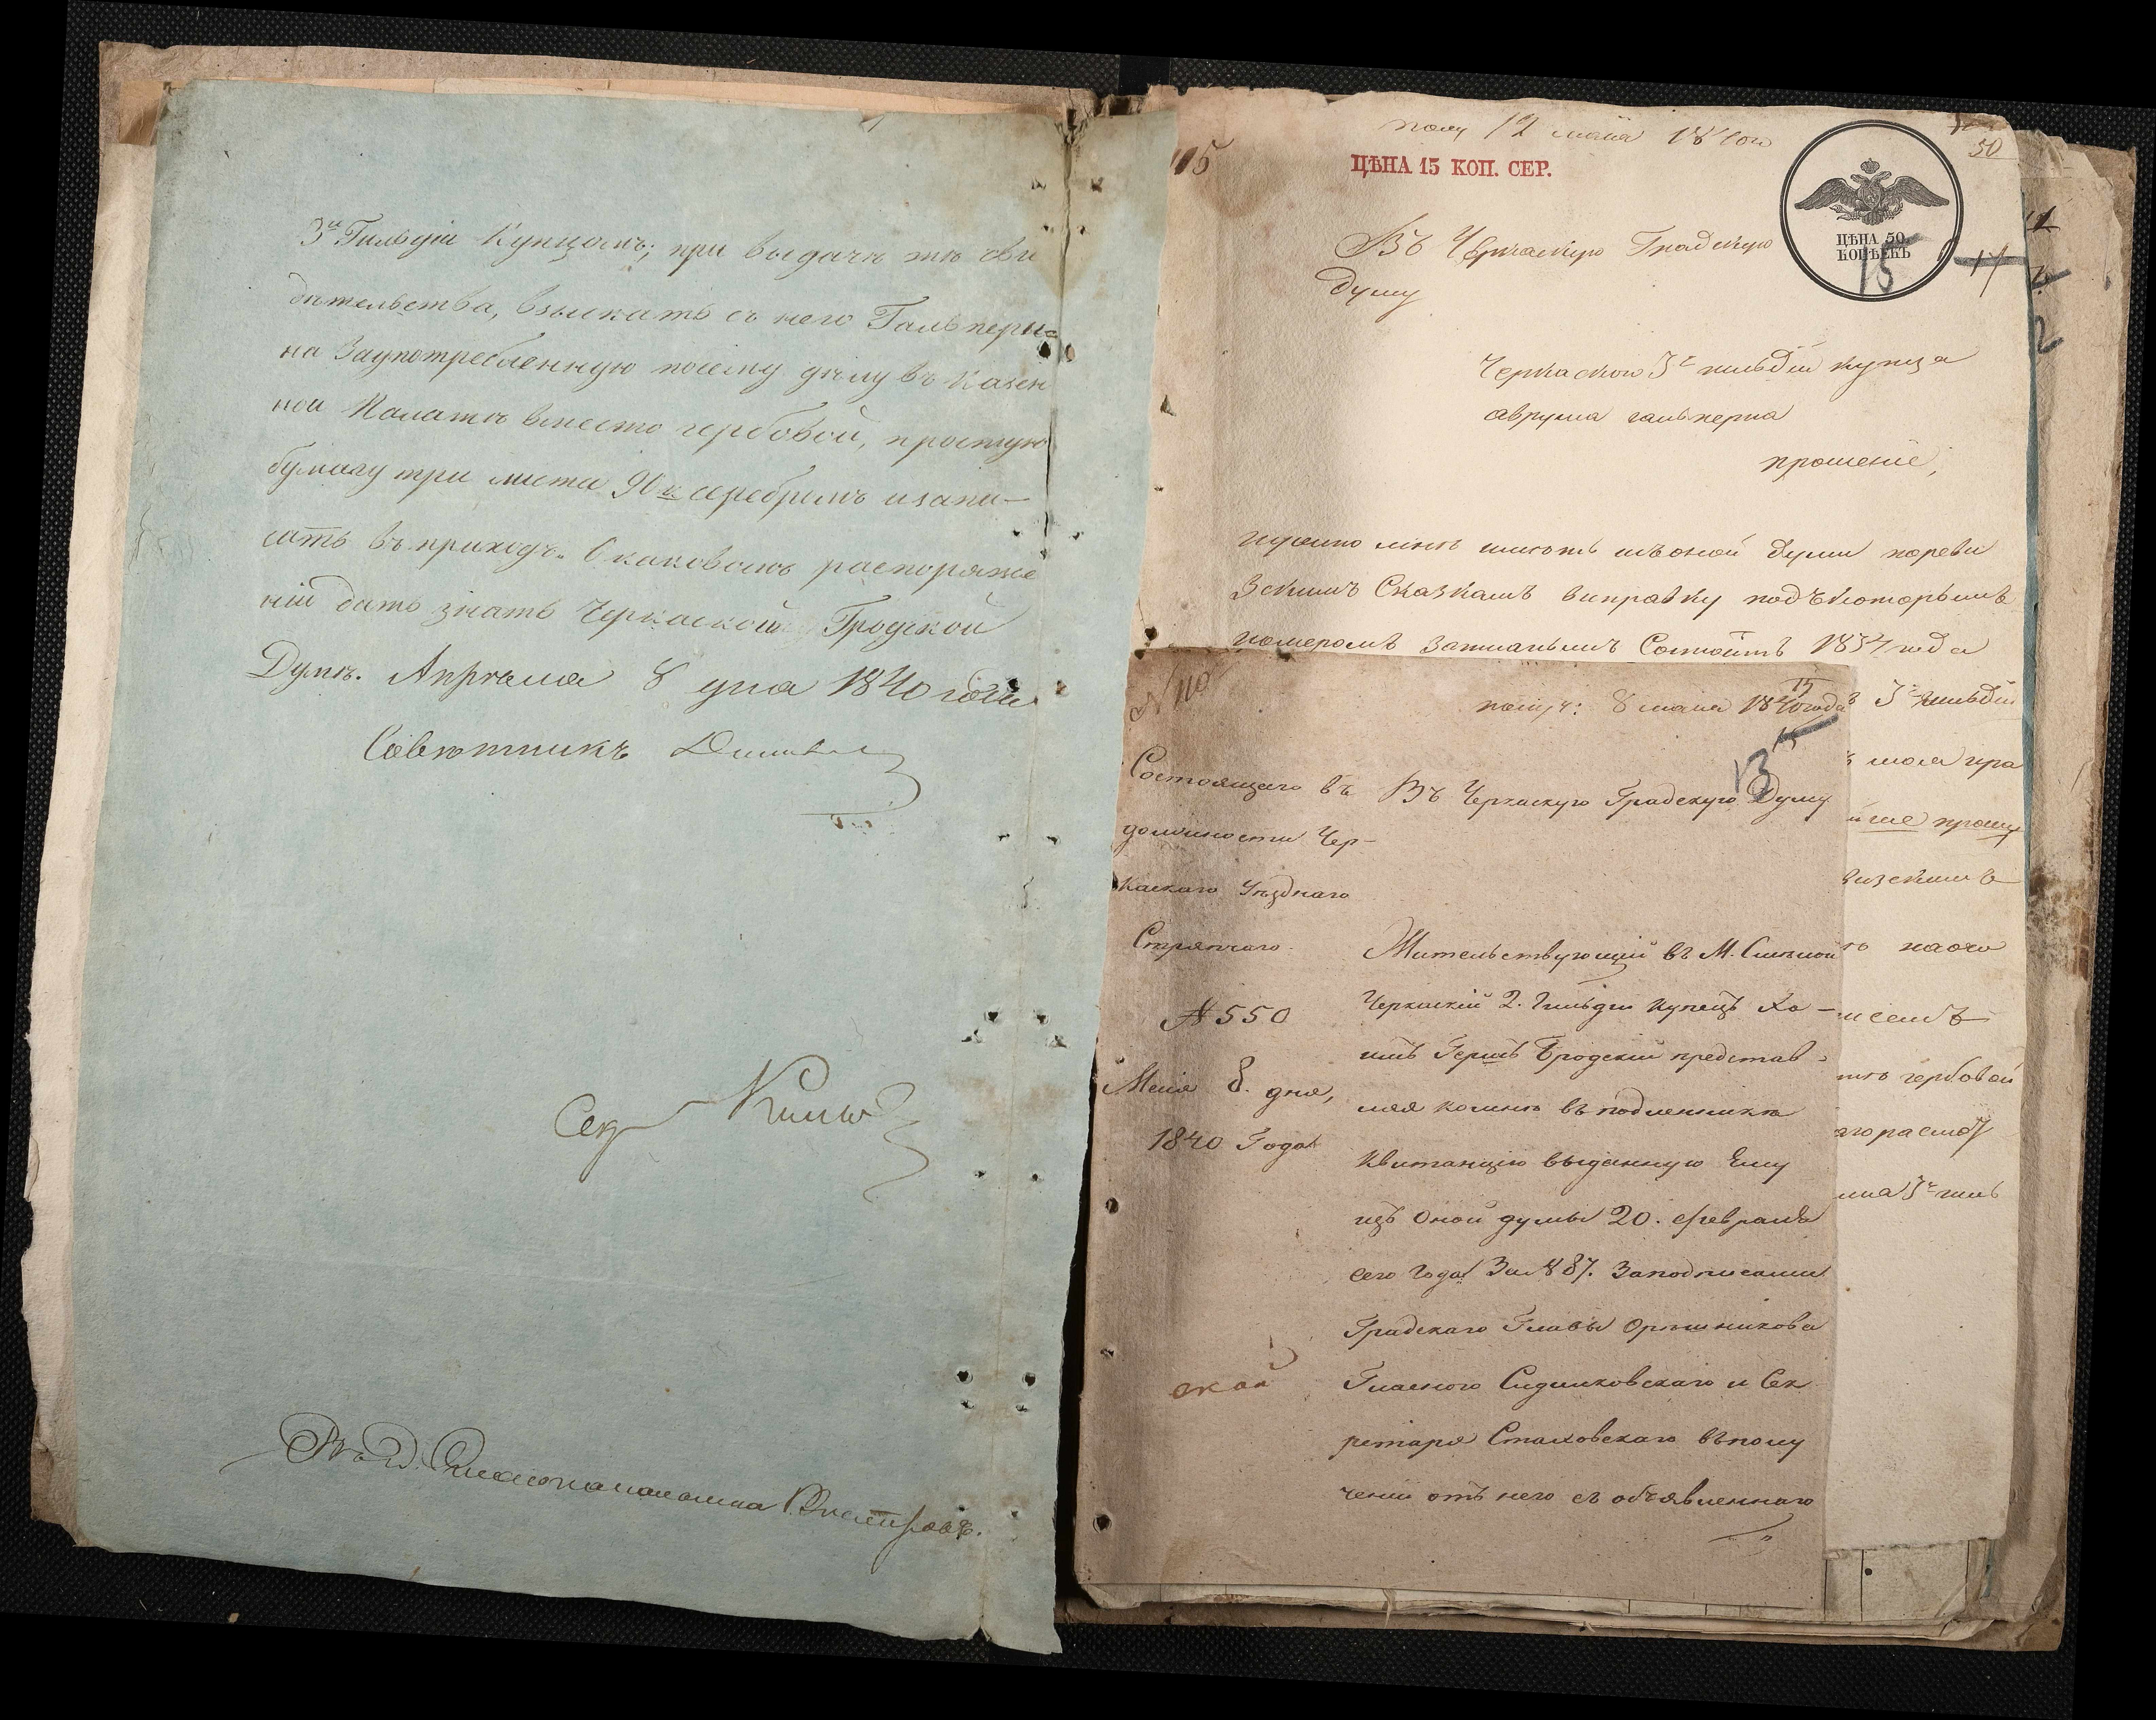 3й Гильдіи Купцомъ; при выдачѣ тѣ сви
дѣтельства, взыскать съ него Гальпери=
на Заупотребленную посему дѣлу въ Казен
ной Палатѣ вместо гербовой, простую
бумагу три листа 90 к серебромъ изапи–
сать въ приходъ. О каковомъ распоряже
ніи дать знать Черкаской Градской
Думѣ. Апрѣля 8 дня 1840 года
Совѣтникъ
Сек
115
полу 12 маія 1840го
50
ЦѢНА 15 КОП. СЕР.
ЦѢНА 50
КОПѢЕКЪ
15
17
Въ Черкаскую Градскую
Думу
Черкаского 3й гильдіи купца
аврума гальперна
прошеніе,
нужно мнѣ имѣть изъ оной думи пореви
зскимъ Сказкамъ виправку подъ которымъ
номеромъ записанымъ Состоитъ 1834 года
3й гильдіи
прошу
визскимъ
гербовой
3й гил
N 110
получ: 8 маія 1840 года
15
13
Состоящаго въ
должности Чер–
каскаго Уѣзднаго
Стряпчаго.
№ 550
Маія 8. дня,
1840 Года
Въ Черкаскую Градскую Думу
Жительствующій въ М. Смѣлой
Черкаскій 2. Гильдіи купецъ Ха–
имъ Гершъ Бродскій представ–
ляя комнѣ въ подленникѣ
Квитанцію выданную Ему
изъ Оной думы 20. февраля
сего Года За № 87. Заподписами
Градскаго Главы Оръшникова
Гласного Сидилковскаго и Сек
ретаря Стаховскаго въполу
ченіи отъ него съ объявленнаго